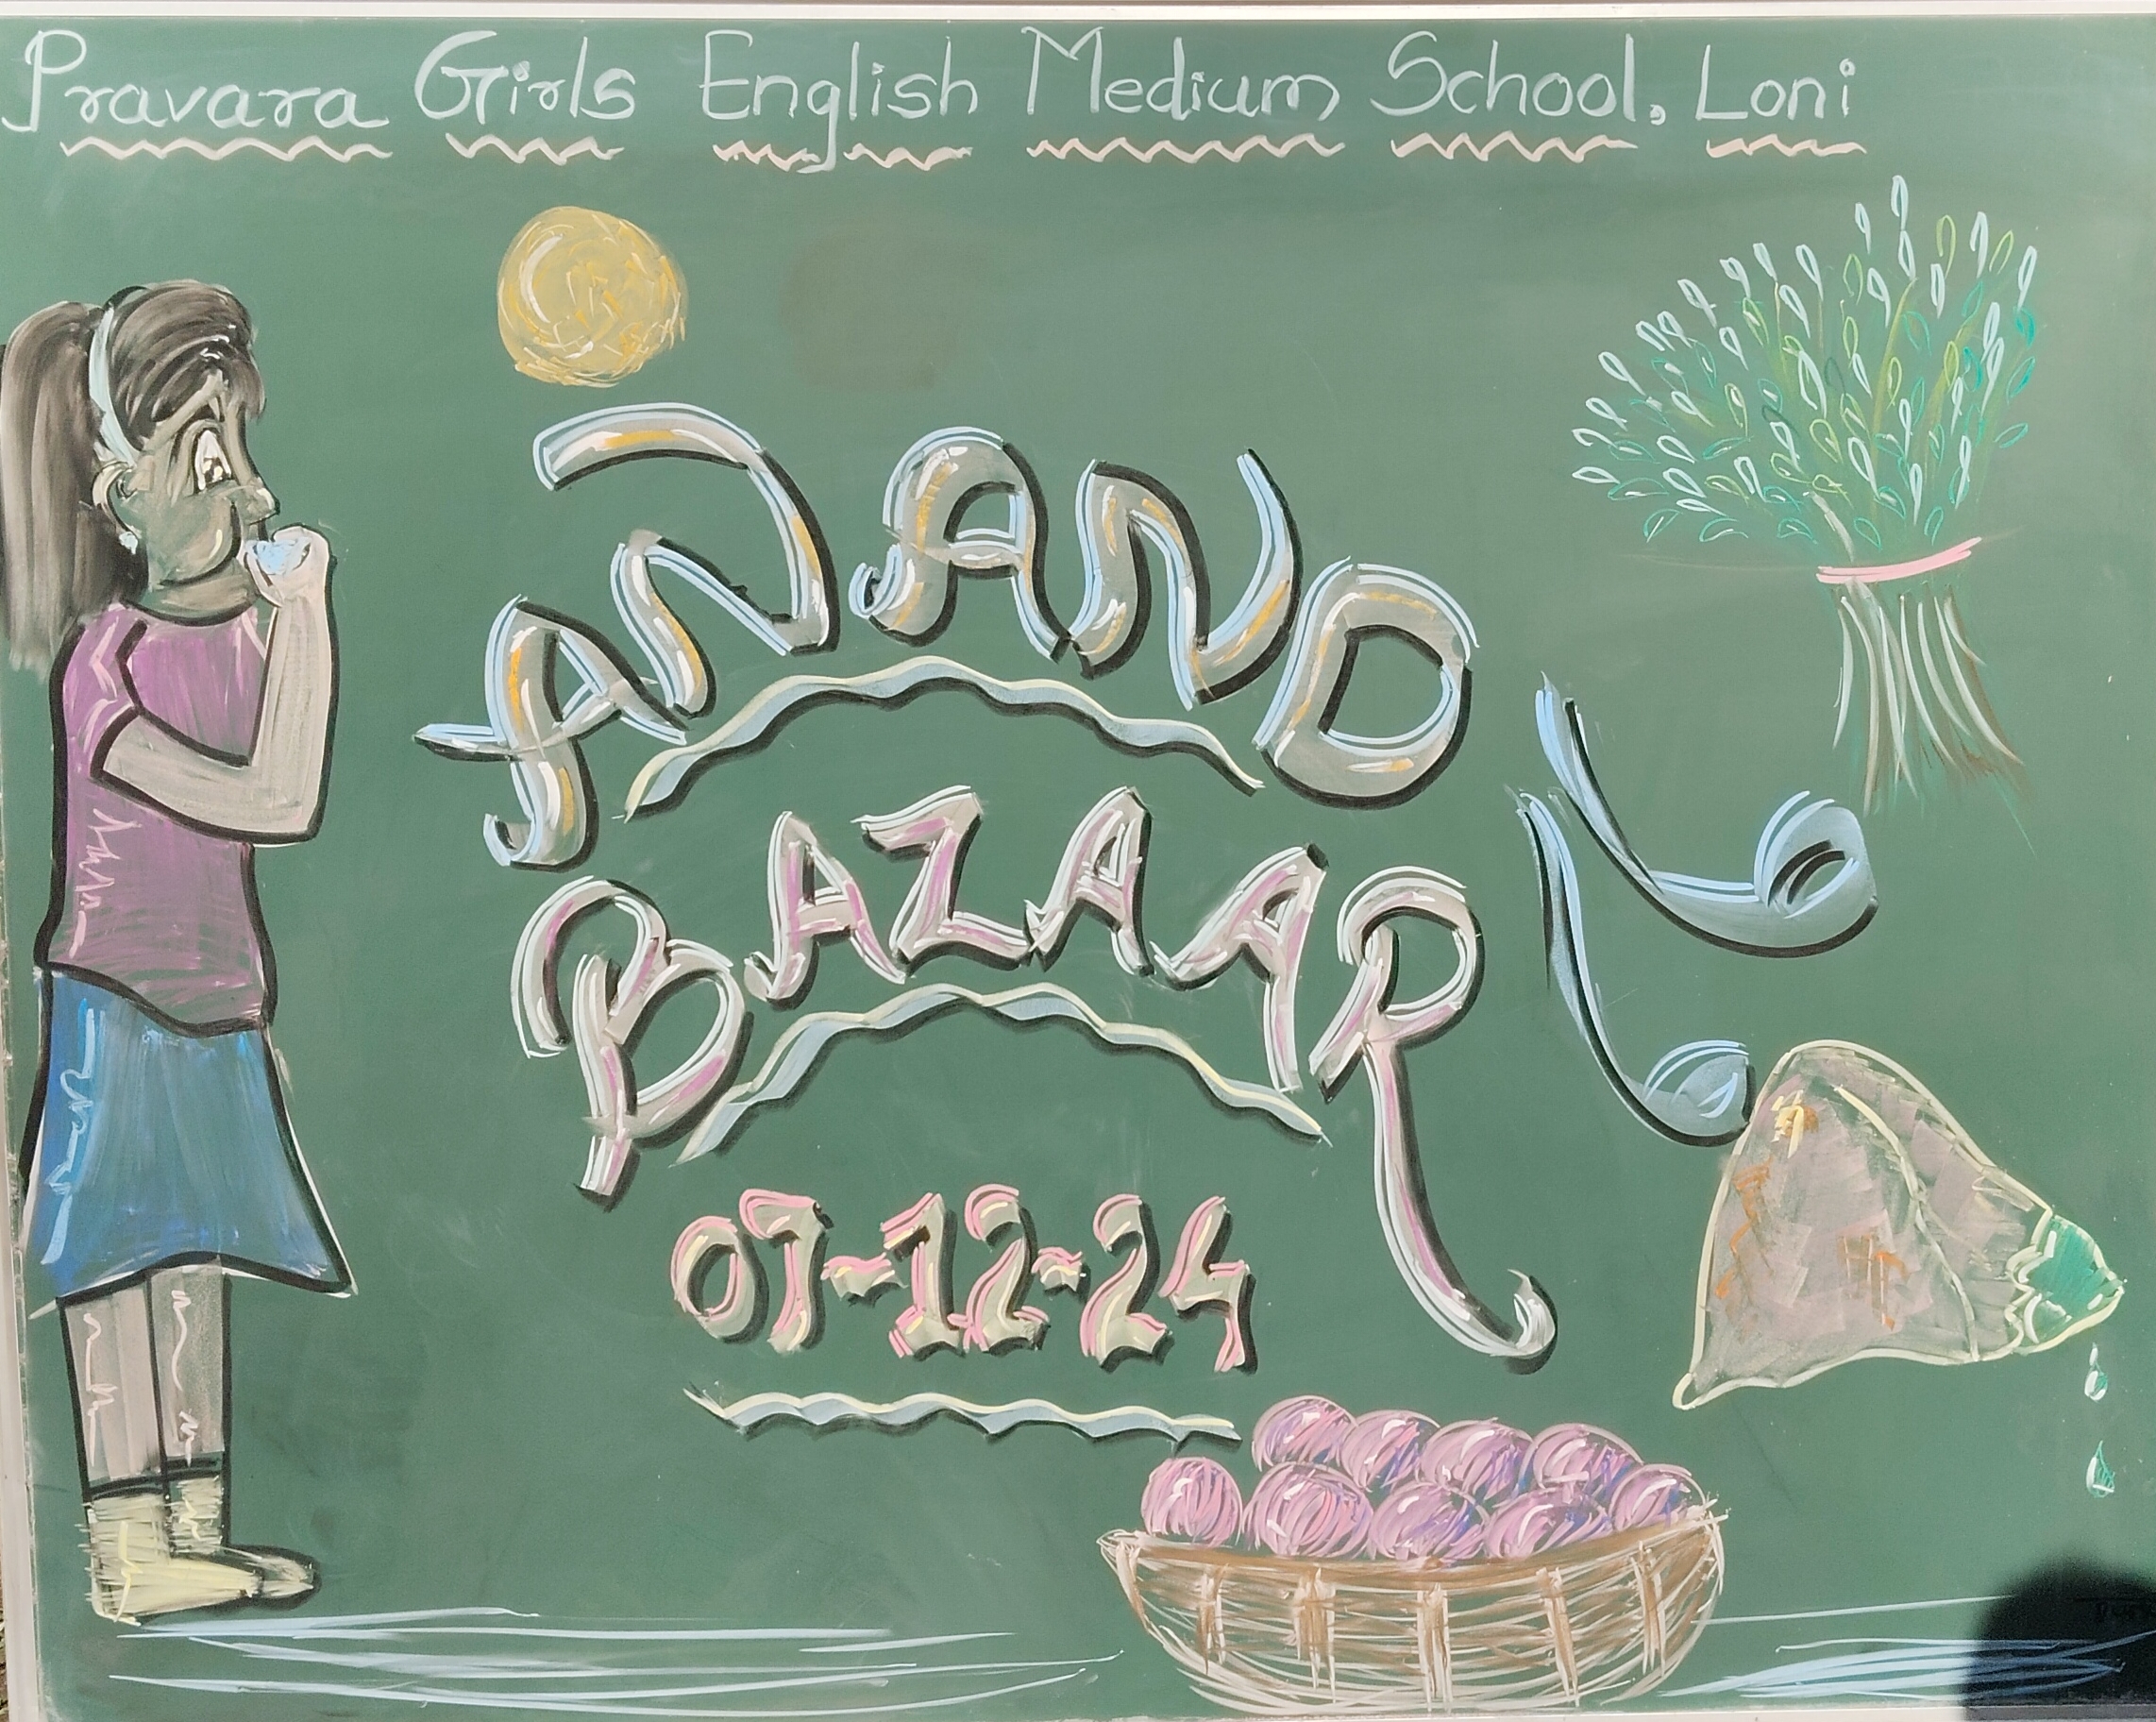 Pravara Girls English Medium School, Loni
ANAND
BAZAAR
07-12-24